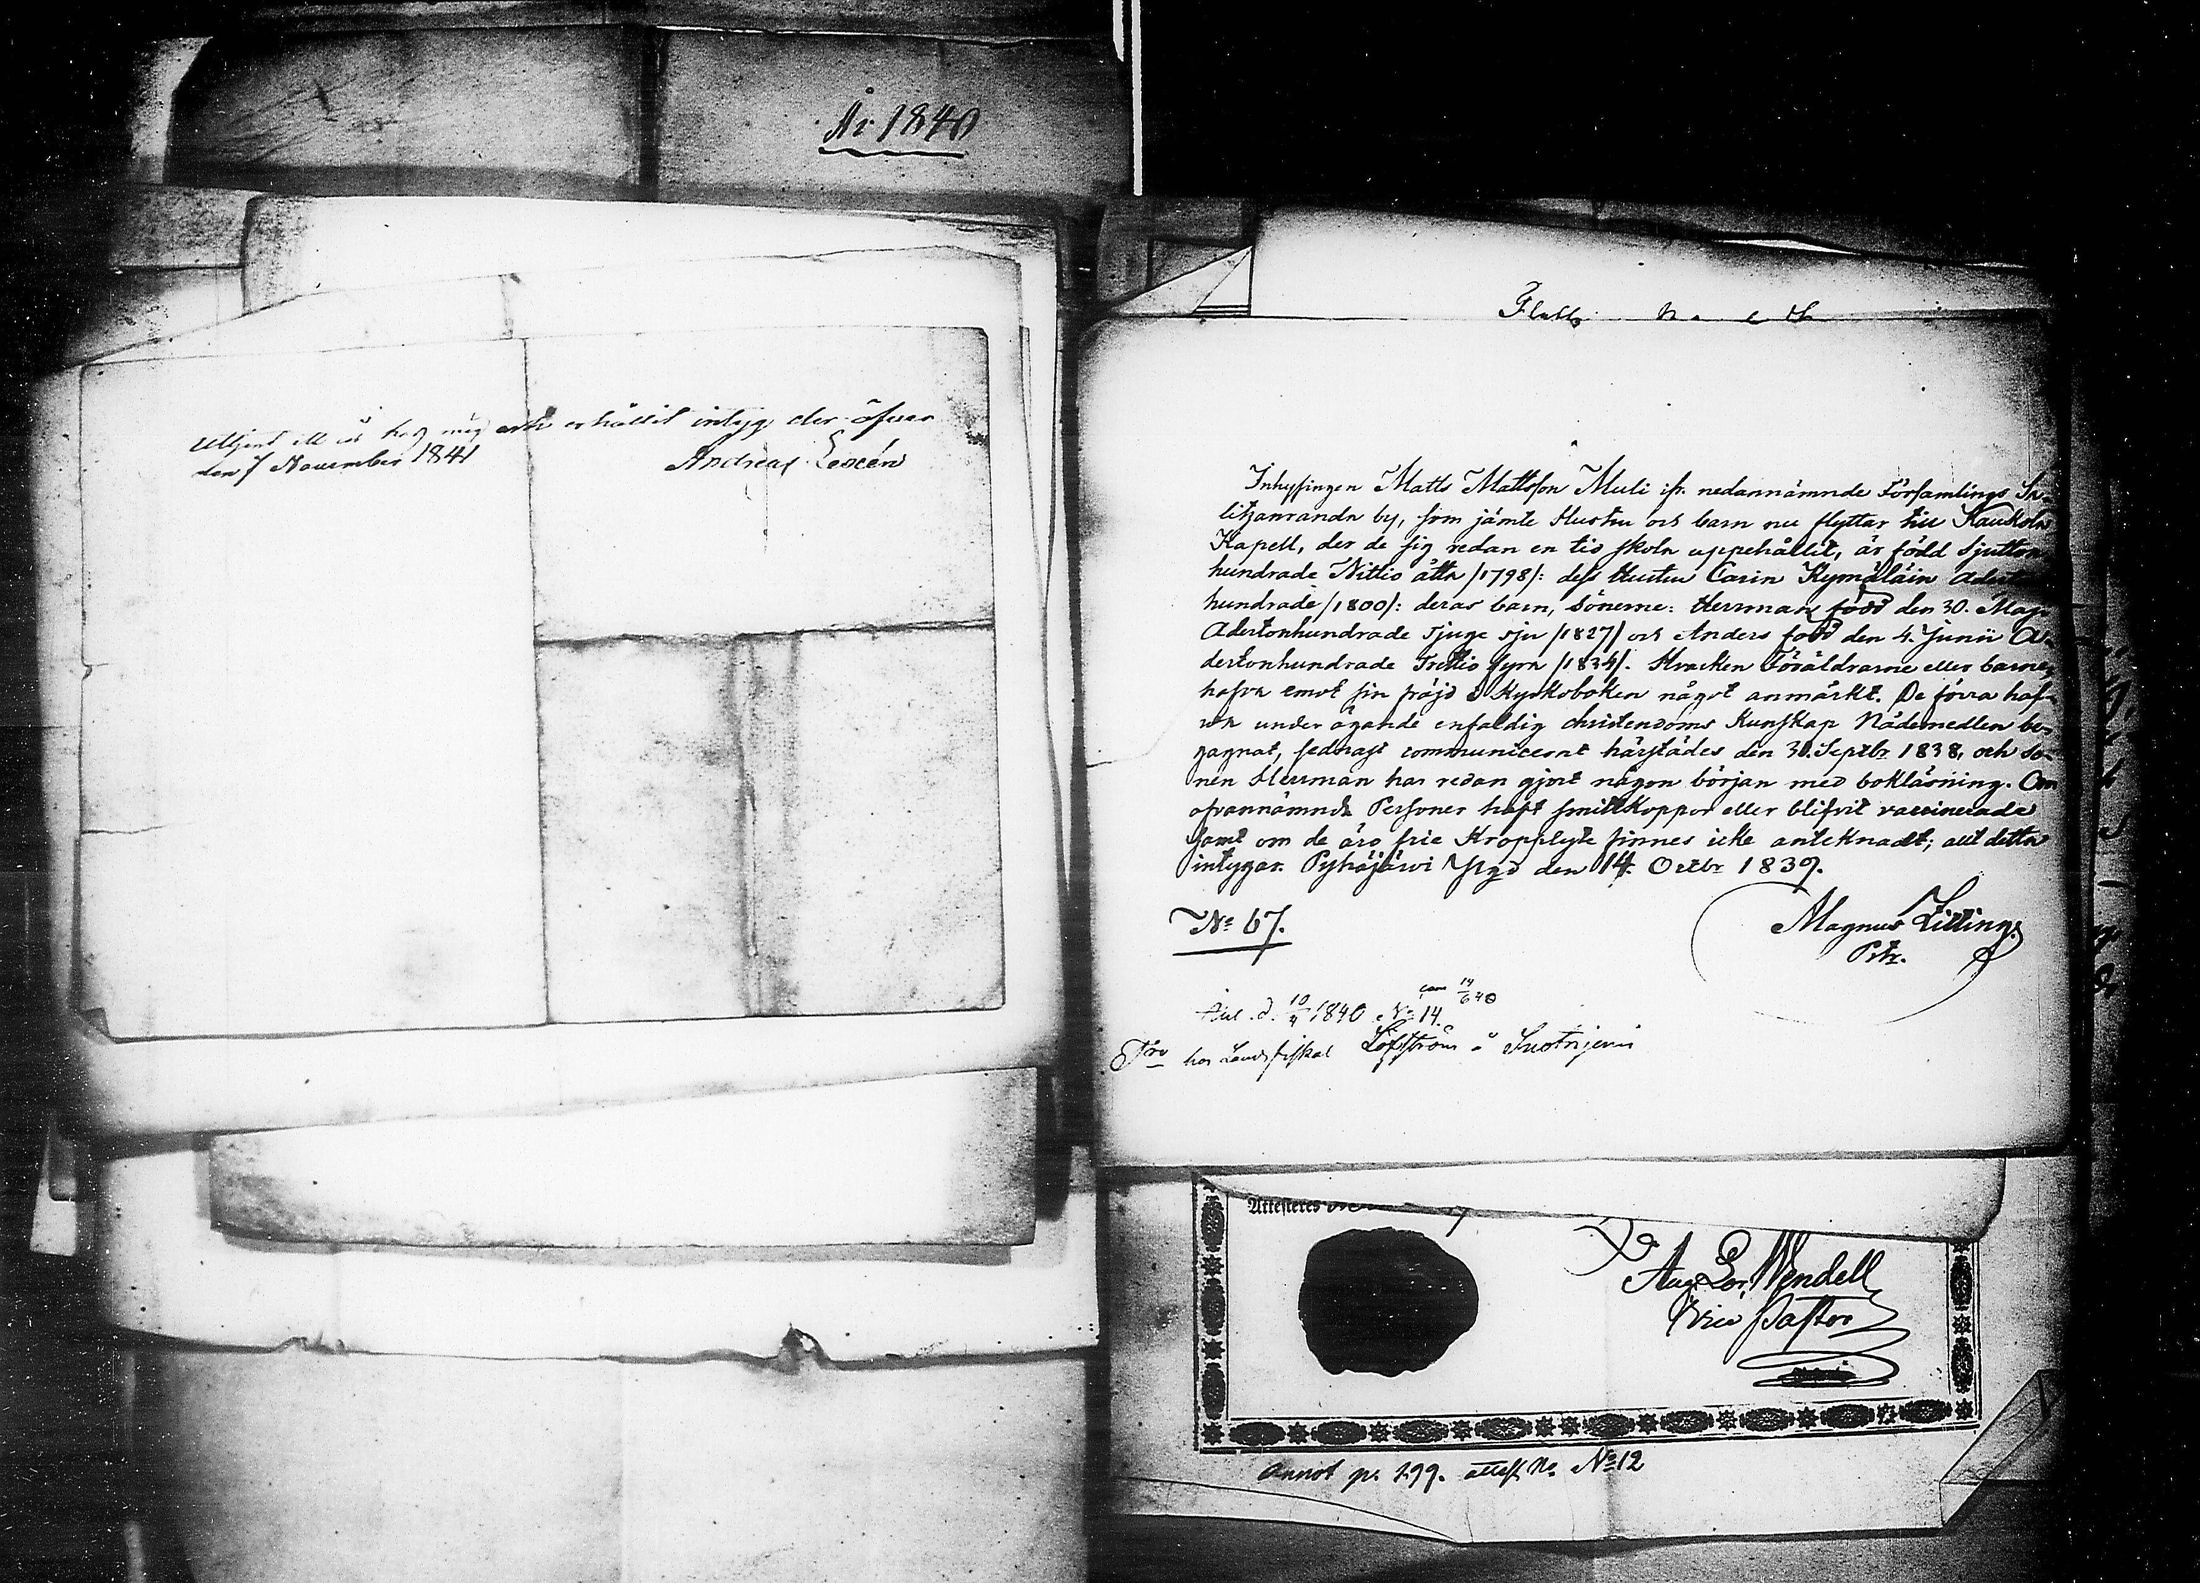 År 1840
har mig och erhållit intyg der öfver
den 7 November 1841
Andreas
Inhysingen Matts Mattsson Muli ifr. nedannämnde Församlings
by, som jämte Hustru och barn nu flyttar till Kaukola
Kapell, der de sig redan en tid skola uppehållit, är född Sjutton
hundrade Nittio åtta /1798/: dess Hustru Carin Kymäläin Adert
hundrade /1800/: deras barn, Sönerne: Herrman född den 30. Maji
Adertonhundrade tjuge sju /1827/ och Anders född den 4. Junii A-
dertonhundrade Trettio fyra /1834/. Hvarken Föräldrarne eller barnen
hafva emot sin fräjd i Kyrkoboken något anmärkt. De förra haf-
va under ägande enfaldig christendoms Kunskap Nådemedlen be-
gagnat, sednast communicerat härstädes den 30. Septbr 1838, och So-
nen Herrman har redan gjort någon början med bokläsning. Om
ofvannämnda Personer haft smittkoppor eller blifvit vaccinerade
samt om de äro frie Kroppslyte finnes icke antecknadt; allt detta
intygar. Pyhäjärvi Prgd den 14. Octbr 1839.
No 67.
Magnus Zilling
Pstr.
d. 10/4 1840 No 14.
hos Landsfiskal Löfström i
Attesteres
Aug. Wendell
Vice Pastor
Annot p. 199. attest. No No 12